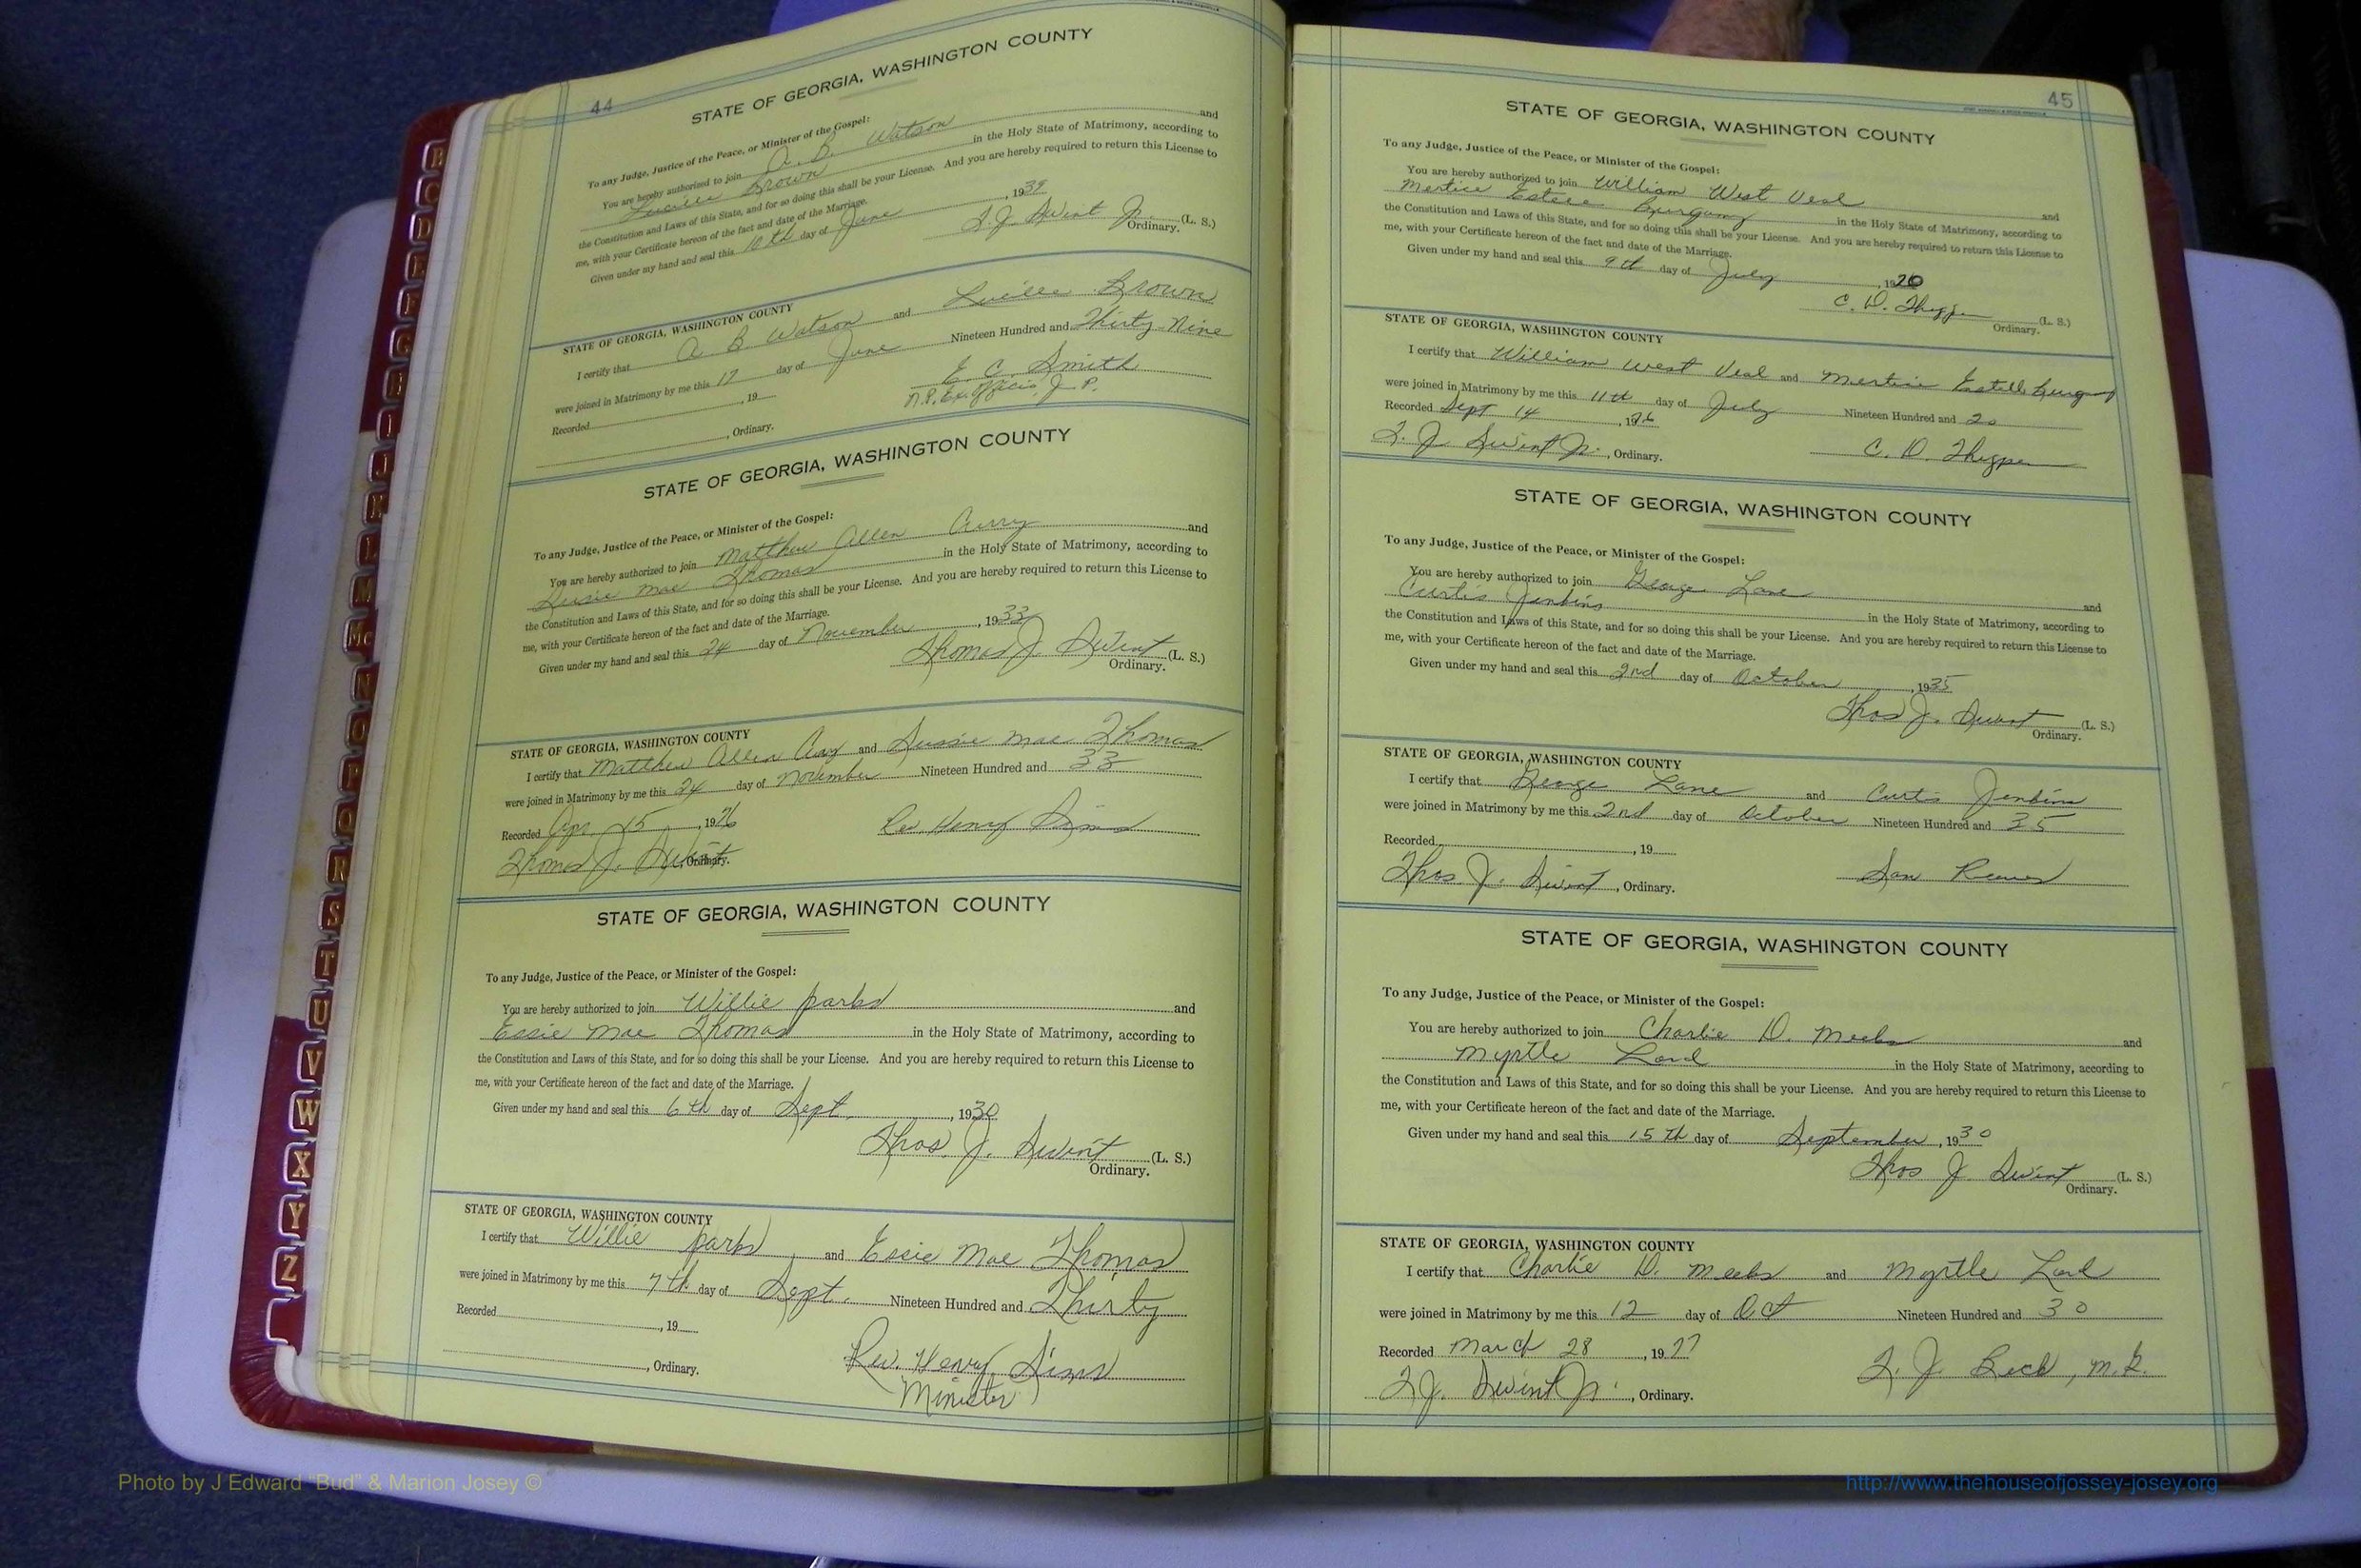 44
STATE OF GEORGIA, WASHINGTON COUNTY
To any Judge, Justice of the Peace, or Minister of the Gospel:
You are hereby authorized to join A. B. Watson and
Lucille Brown in the Holy State of Matrimony, according to
the Constitution and Laws of this State, and for so doing this shall be your License. And you are hereby required to return this License to
me, with your Certificate hereon of the fact and date of the Marriage.
Given under my hand and seal this 10th day of June, 1939
T. J. Swint Jr. (L. S.)
Ordinary.
STATE OF GEORGIA, WASHINGTON COUNTY
I certify that A B Watson and Lucille Brown
were joined in Matrimony by me this 17 day of June Nineteen Hundred and Thirty-Nine
Recorded , 19 E. C. Smith
N.P. Ex. Officio J. P.
, Ordinary.
STATE OF GEORGIA, WASHINGTON COUNTY
To any Judge, Justice of the Peace, or Minister of the Gospel:
You are hereby authorized to join Matthew Allen Curry and
Sussie Mae Thomas in the Holy State of Matrimony, according to
the Constitution and Laws of this State, and for so doing this shall be your License. And you are hereby required to return this License to
me, with your Certificate hereon of the fact and date of the Marriage.
Given under my hand and seal this 24 day of November, 1933
Thomas J. Swint (L. S.)
Ordinary.
STATE OF GEORGIA, WASHINGTON COUNTY
I certify that Matthew Allen and Sussie Mae Thomas
were joined in Matrimony by me this 24 day of November Nineteen Hundred and 33
Recorded Apr. 15, 1976 Rev Henry Sims
Thomas J. Swint Ordinary.
STATE OF GEORGIA, WASHINGTON COUNTY
To any Judge, Justice of the Peace, or Minister of the Gospel:
You are hereby authorized to join Willie Parks and
Essie Mae Thomas in the Holy State of Matrimony, according to
the Constitution and Laws of this State, and for so doing this shall be your License. And you are hereby required to return this License to
me, with your Certificate hereon of the fact and date of the Marriage.
Given under my hand and seal this 6th day of Sept., 1930
Thos. J. Swint (L. S.)
Ordinary.
STATE OF GEORGIA, WASHINGTON COUNTY
I certify that Willie Parks, and Essie Mae Thomas
were joined in Matrimony by me this 7th day of Sept. Nineteen Hundred and Thirty
Recorded , 19
, Ordinary. Rev. Henry Sims
Minister
45
STATE OF GEORGIA, WASHINGTON COUNTY
To any Judge, Justice of the Peace, or Minister of the Gospel:
You are hereby authorized to join William West Veal and
Mertice Estele in the Holy State of Matrimony, according to
the Constitution and Laws of this State, and for so doing this shall be your License. And you are hereby required to return this License to
me, with your Certificate hereon of the fact and date of the Marriage.
Given under my hand and seal this 9th day of July, 1920
C. D. Thigpen (L. S.)
Ordinary.
STATE OF GEORGIA, WASHINGTON COUNTY
I certify that William West Veal and Mertice Estelle
were joined in Matrimony by me this 11th day of July Nineteen Hundred and 20
Recorded Sept 14, 1976
T. J. Swint Jr., Ordinary. C. D. Thigpen
STATE OF GEORGIA, WASHINGTON COUNTY
To any Judge, Justice of the Peace, or Minister of the Gospel:
You are hereby authorized to join George Lane and
Curtis Jenkins in the Holy State of Matrimony, according to
the Constitution and Laws of this State, and for so doing this shall be your License. And you are hereby required to return this License to
me, with your Certificate hereon of the fact and date of the Marriage.
Given under my hand and seal this 2nd day of October, 1935
Thos J. Swint (L. S.)
Ordinary.
STATE OF GEORGIA, WASHINGTON COUNTY
I certify that George Lane and Curtis Jenkins
were joined in Matrimony by me this 2nd day of October Nineteen Hundred and 35
Recorded , 19
Thos. J. Swint, Ordinary. Reeves
STATE OF GEORGIA, WASHINGTON COUNTY
To any Judge, Justice of the Peace, or Minister of the Gospel:
You are hereby authorized to join Charlie D. Meeks and
Myrtle Lord in the Holy State of Matrimony, according to
the Constitution and Laws of this State, and for so doing this shall be your License. And you are hereby required to return this License to
me, with your Certificate hereon of the fact and date of the Marriage.
Given under my hand and seal this 15th day of September, 1930
Thos J. Swint (L. S.)
Ordinary.
STATE OF GEORGIA, WASHINGTON COUNTY
I certify that Charlie D. Meeks and Myrtle Lord
were joined in Matrimony by me this 12 day of Oct Nineteen Hundred and 30
Recorded March 28, 1977 T. J. Beck, M.G.
T J. Swint Jr., Ordinary.
B
C
D
E
F
G
H
I
J
K
L
M
Mc
N
O
P
Q
R
S
T
U
V
W
X
Y
Z
Photo by J Edward "Bud" & Marion Josey ©
http://www.thehouseofjossey-josey.org